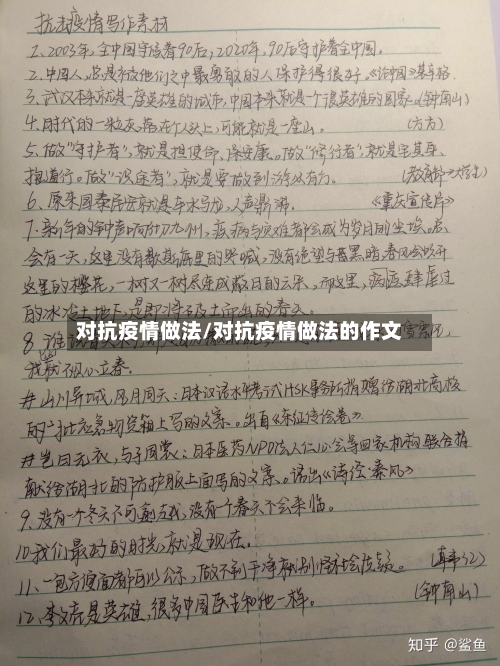 抗击疫情写作素材
1、2003年,全中国守护着90后,2020年,90后守护着全中国。
2、中国人,总是被他们之中最勇敢的人保护得很好。《论中国》基辛格
3、武汉本来就是一座英雄的城市,中国本来就是一个很英雄的国家。(钟南山)
4、时代的一粒灰,落在个人头上,可能就是一座山。 (方方)
5、做“守护者”,就是担使命、保安康。做“修行者”,就是宅其身、
指道行。做“设
,就是要做到济以有方。 (教育部→大学生)
6、原来国泰民安就是车水马龙,人声鼎沸。 《重庆宣传片》
7、新年的钟声响彻九州,疫病与灾难都会成为岁月的尘埃。总
会有一天,这里没有歇斯底里的哭喊,没有绝望与昏黑暗,春风会吹开
这里的樱花,一树又一树尽连成蔽日的云朵,而这里,病医肆虐过
的冰冷土地下,是即将破土而出的春天。
8、谁说
对抗疫情做法/对抗疫情做法的作文
我就不必立春。
#山川异域,风月同天:日本汉语水平考试HSK事务所捐赠给湖北高校
的一批应急物资箱上写的文案。出自《东征传绘卷》
#岂曰无衣,与子同裳:日本医药NPO法人仁心会等四家机构联合捐
献给湖北的防护服上面写的文案。语出《诗经·秦风》
9、没有一个冬天不可逾越,没有一个春天不会来临。
10、我们最好的时光,就是现在。
11、一包方便面都可以公示,做不到干净就别怪社会质疑。
12、李文亮是英雄,很多中国医生和他一样。 (钟南山)
知乎 @鲨鱼